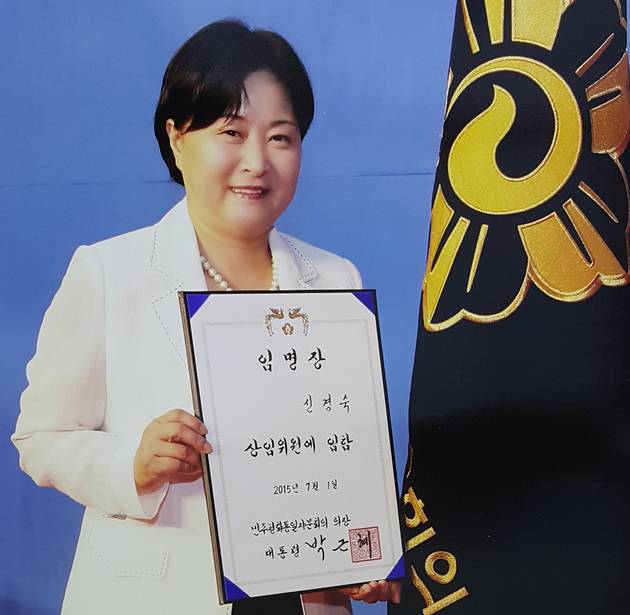 임명장
신경숙
상임위원에 임함
2015년 7월 1일
민주평화통일자문회의 의장
대통령 박근혜
회의